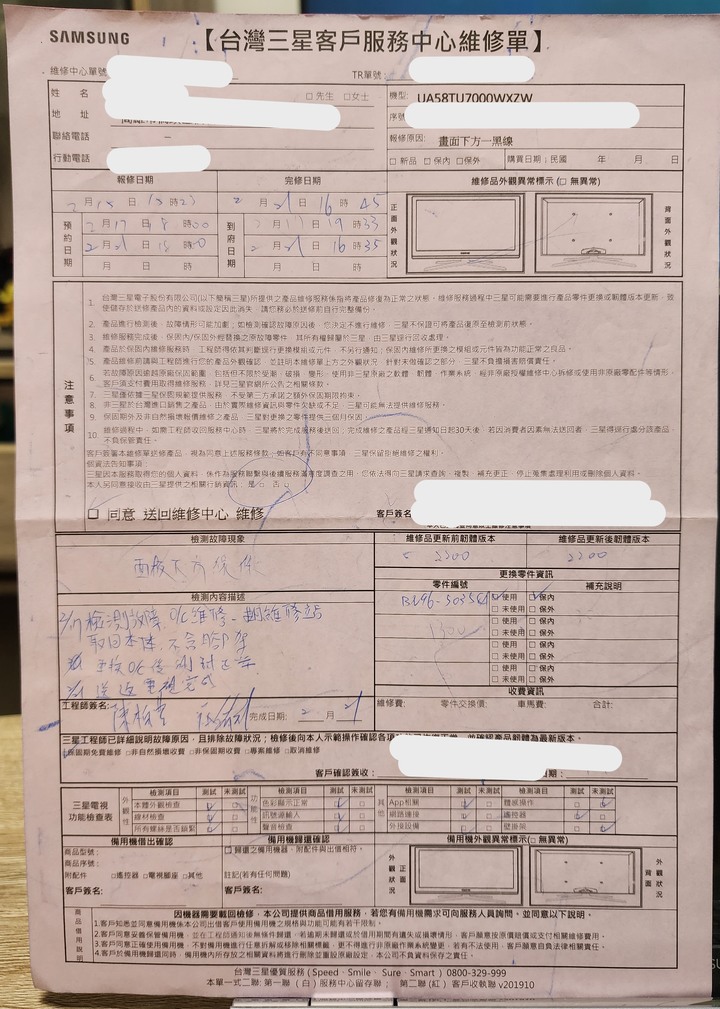 SAMSUNG
【台灣三星客戶服務中心維修單】
維修中心單號
TR單號:
姓 名
□先生 □女士
機型: UA58TU7000WXZW
地 址
序號
聯絡電話
報修原因: 畫面下方一黑線
行動電話
□新品 □保內 □保外
購買日期:民國 年 月 日
報修日期
完修日期
維修品外觀異常標示(□ 無異常)
月 日 時
2 月 21 日 16 時 45
預約日期
2 月 17 日 18 時 00
2 月 21 日 時
月 日 時
到府日期
月 17 日 19 時 33
2 月 21 日 16 時 35
月 日 時
正面外觀狀況
背面外觀狀況
注意事項
1. 台灣三星電子股份有限公司(以下簡稱三星)所提供之產品維修服務係指將產品修復為正常之狀態。維修服務過程中三星可能需要進行產品零件更換或韌體版本更新,致使儲存於送修產品內的資料或設定因此消失,請您務必於送修前自行完整備份。
2. 產品進行檢測後,故障情形可能加劇;如檢測確認故障原因後,您決定不進行維修,三星不保證可將產品復原至檢測前狀態。
3. 維修服務完成後,保固內/保固外經替換之原故障零件,其所有權歸屬於三星,由三星逕行回收處理。
4. 產品於保固內維修服務時,工程師得依其判斷逕行更換模組或元件,不另行通知;保固內維修所更換之模組或元件皆為功能正常之良品。
5. 產品維修前請與工程師進行您的產品外觀確認,並註明本維修單上方之外觀狀況,針對未做確認之部分,三星不負擔損害賠償責任。
6. 若故障原因逾越原廠保固範圍,包括但不限於受潮、破損、變形、使用非三星原廠之軟體、韌體、作業系統,經非原廠授權維修中心拆修或使用非原廠零配件等情形,客戶須支付費用取得維修服務,詳見三星官網所公告之相關條款。
7. 三星僅依據三星保固規範提供服務,不受第三方承諾之額外保固期拘束。
8. 非三星於台灣進口銷售之產品,由於實際維修資訊與零件欠缺或不足,三星可能無法提供維修服務。
9. 保固期外及非自然損壞報價維修之產品,三星對更換之零件提供三個月保固。
10. 維修過程中,如需工程師收回服務中心時,三星將於完成服務後送回;完成維修之產品經三星通知日起30天後,若因消費者因素無法送回者,三星得逕行處分該產品,不負保管責任。
客戶簽署本維修單送修產品,視為同意上述服務條款,如客訂有不同意事項,三星保留拒絕維修之權利。
個資法告知事項:
三星因本服務取得您的個人資料,係作為服務聯繫與後續服務滿意度調查之用,您依法得向三星請求查詢、複製、補充更正、停止蒐集處理利用或刪除個人資料。
本人另同意接收由三星提供之相關行銷資訊:是□ 否□
□ 同意 送回維修中心 維修
客戶簽名
檢測故障現象
維修品更新前韌體版本
維修品更新後韌體版本
面板下方線條
2200
2200
更換零件資訊
零件編號
補充說明
檢測內容描述
□使用 □保內
□未使用 □保外
□使用 □保內
□未使用 □保外
□使用 □保內
□未使用 □保外
□使用 □保內
□未使用 □保外
2/17 檢測故障
取回本體,不含腳架
收費資訊
維修費: 零件交換價: 車馬費: 合計:
工程師簽名:
完成日期: 2 月 21
三星工程師已詳細說明故障原因,且排除故障狀況;檢修後向本人示範操作確認各項
並確認產品韌體為最新版本。
□保固期免費維修 □非自然損壞收費 □非保固期收費 □專案維修 □取消維修
客戶確認簽收:
日期:
三星電視功能檢查表
外觀性
檢測項目 測試 未測試
本體外觀檢查
線材檢查
所有螺絲是否鎖緊
功能性
檢測項目 測試 未測試
色彩顯示正常
訊號源輸入
聲音檢查
其他
檢測項目 測試 未測試
App相關
網路連接
外接設備
檢測項目 測試 未測試
體感操作
遙控器
壁掛架
備用機借出確認
備用機歸還確認
備用機外觀異常標示(□ 無異常)
商品型號:
商品序號:
附配件 □遙控器 □電視腳座 □其他
客戶簽名:
□ 歸還之備用機器,附配件與出借時相符。
註記(若有任何問題)
客戶簽名:
外觀狀況 正面
外觀狀況 背面
商品借用說明
因機器需要載回檢修,本公司提供商品借用服務,若您有備用機需求可向服務人員詢問,並同意以下說明。
1.客戶知悉並同意備用機係本公司出借客戶使用備用機之規格與功能可有若干限制。
2.客戶同意妥善保管備用機,並在工程師通知後無條件歸還,若逾期未歸還或於借用期間有遺失或損壞情形,客戶願意按原價賠償或支付相關維修費用。
3.客戶同意正確使用備用機,不對備用機進行任意拆解或移除相關標籤,更不得進行非原廠作業系統變更,若有不法使用,客戶願意自負法律相關責任。
4.客戶於備用機歸還同時,備用機內所存放之相關資料將進行刪除並重設原廠設定,本公司不負資料保存之責任。
台灣三星優質服務(Speed、Smile、Sure、Smart) 0800-329-999
本單一式二聯:第一聯 (白) 服務中心留存聯; 第二聯(紅) 客戶收執聯 v201910